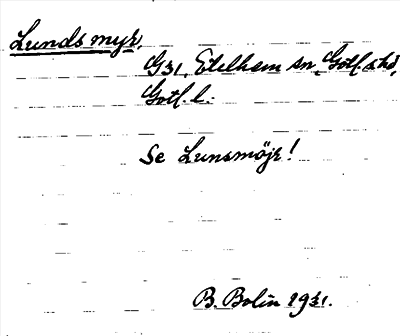 Lunds myr,
G31, Etelhem sn, Gotl. s hd,
Gotl. l.
Se Lunsmöjr!
B. Bolin 1931.